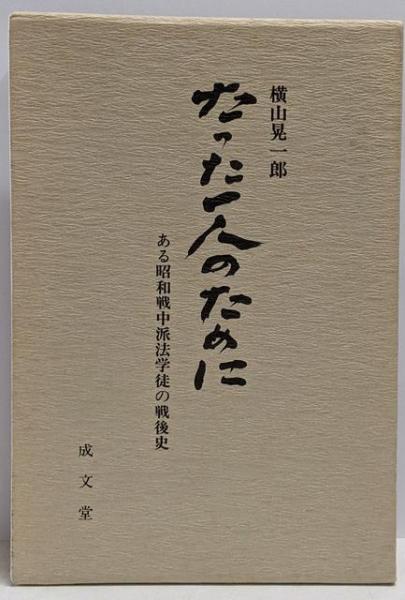 横山晃一郎
たった一人のために
ある昭和戦中派法学徒の戦後史
成文堂